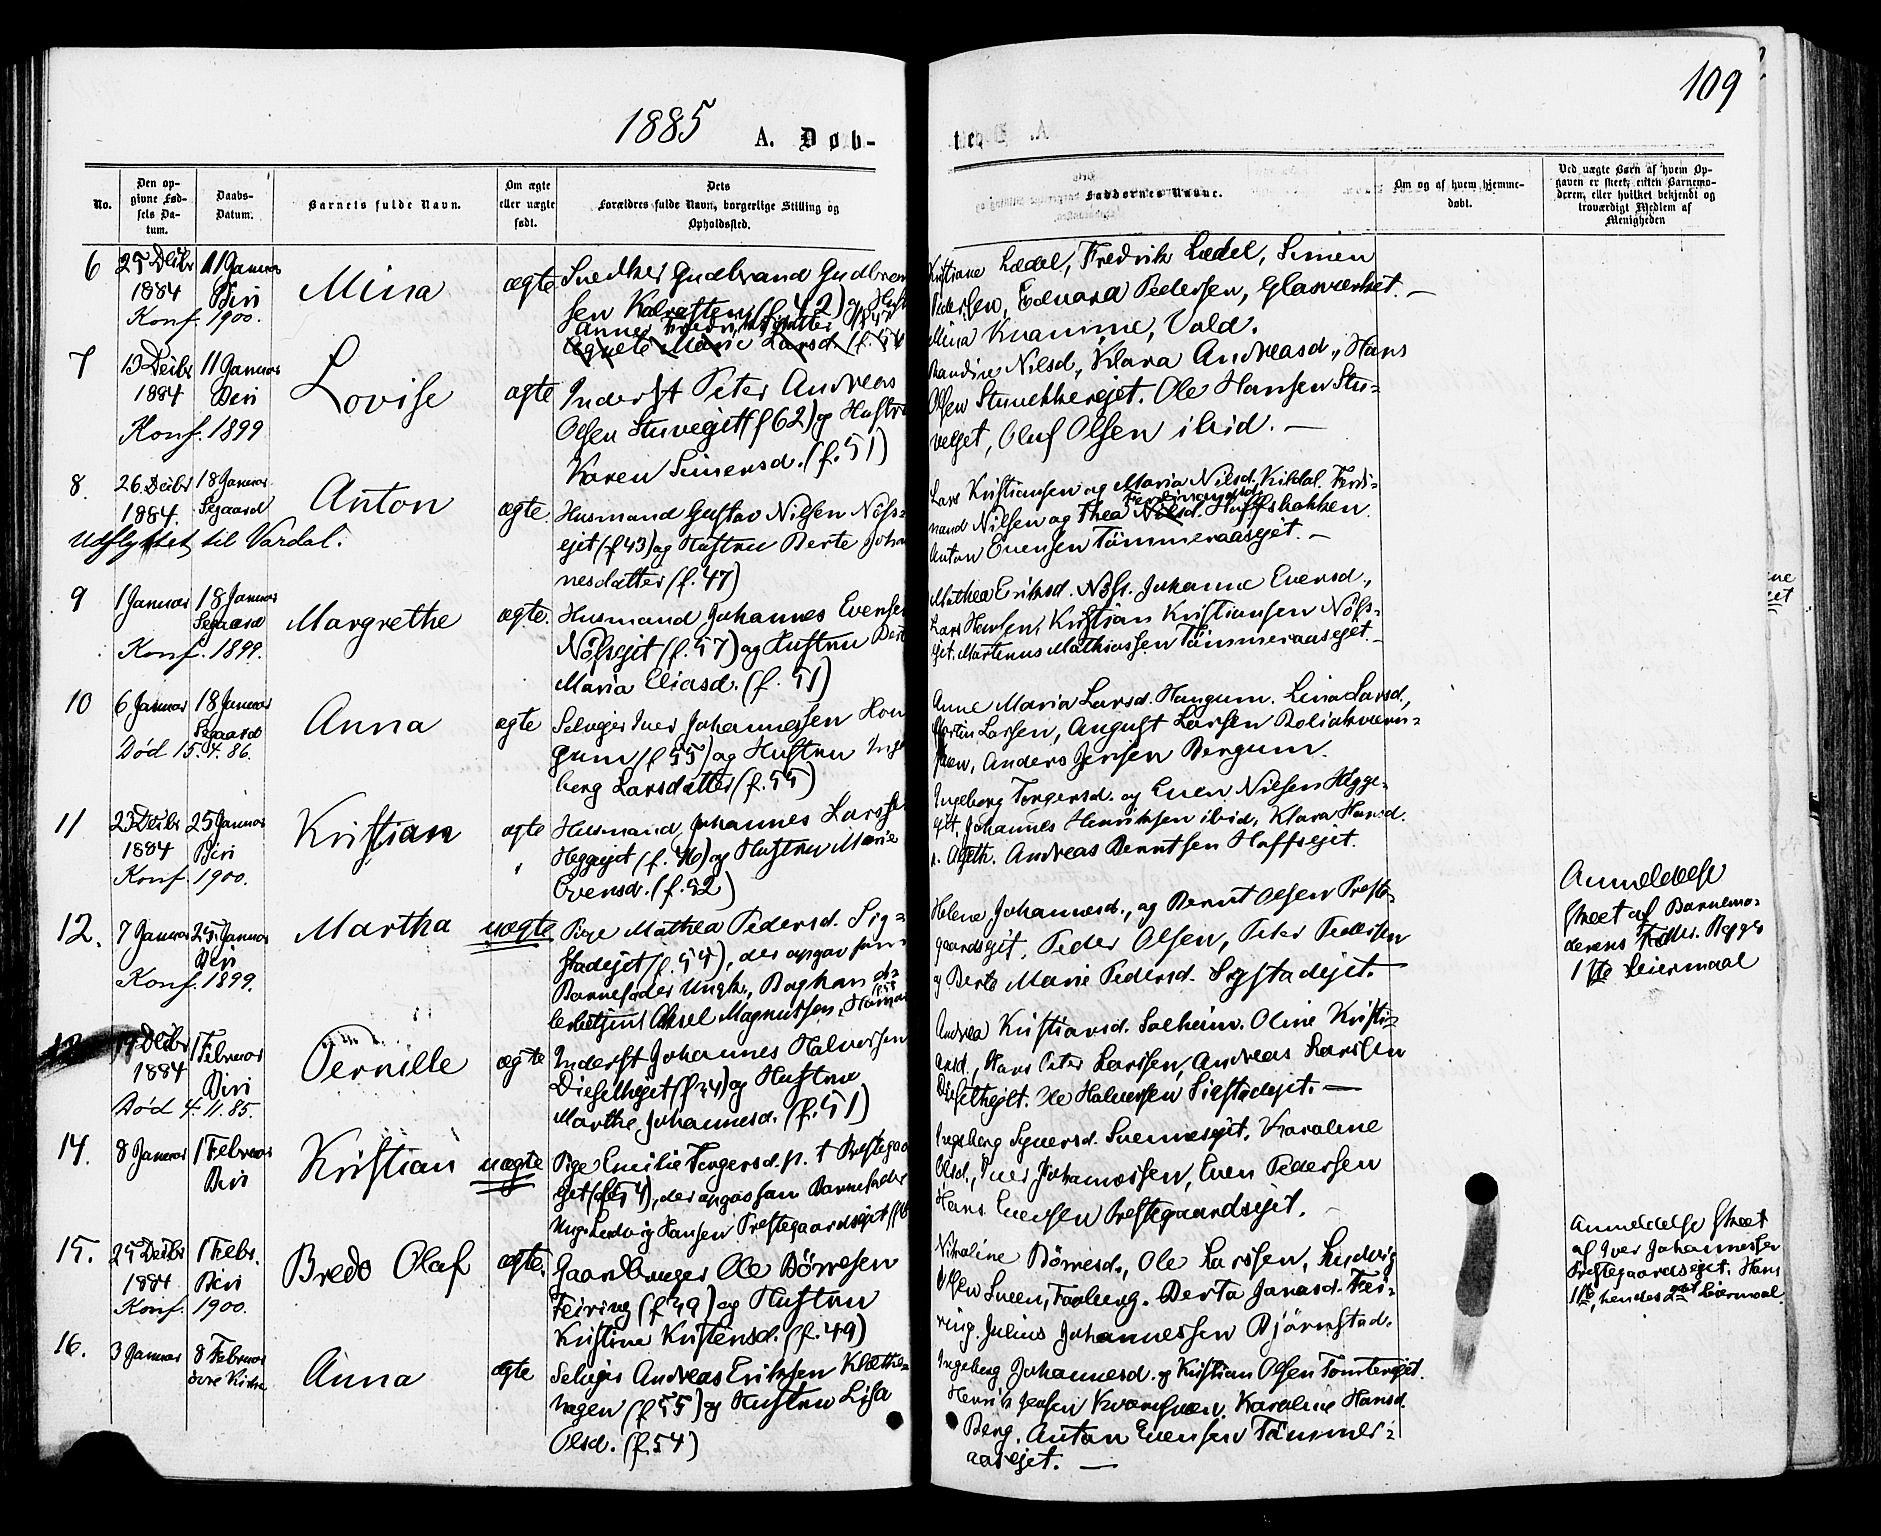 109
1885
A. Døb-
No.
Den opgivne Fødsels Datum.
Daabs-Datum.
Barnets fulde Navn.
Om ægte eller uægte født.
Dets Forældres fulde Navn, borgerlige Stilling og Opholdssted.
Faddernes Navne.
Om og af hvem hjemmedøbt.
Ved uægte Børn af hvem Opgaven er skeet, enten Barnemoderen, eller hvilket bekjendt og troværdigt Medlem af Menigheden
6 25 Decbr 1884 11 Januar Biri
Konf. 1900.
Mina
ægte
Snedker Gudbrand
sen (f. 42) og
Agnete Marie Larsd.
Lædel, Fredrik Lædel, Simen
Edvard Pedersen, Glasværket. —
Mina Kramme, Vold.
7 13 Decbr 1884 11 Januar Biri
Konf. 1899
Lovise
ægte
Inderst Peter Andreas
Olsen (f 62) og Hustru
Karen Simensd. (f. 51)
Nilsd., Klara Andreasd., Hans
Olsen Ole Hansen Stu-
Oluf Olsen ibid. —
8. 26. Decbr 1884. 18 Januar Segaard
Udflyttet til Vardal.
Anton
ægte.
Husmand Gustav Nilsen Nöss-
ejet (f 43) og Hustru Berte Johan
nesdatter (f. 47)
Lars Kristiansen og Maria Nilsd. Kildal. Ferdi-
nand Nilsen og Thea Nilsd. Hoffsbakken.
Anton Evensen Tömmeraasejet. —
9 1 Januar 18 Januar Segaard
Konf. 1899.
Margrethe
ægte.
Husmand Johannes Evensen
Nössejet (f. 57) og Hustru
Maria Eliasd. (f. 51)
Mathea Eriksd. Nöss. Johanne Evensd.,
Lars Hansen, Kristian Kristiansen Nöss-
ejet. Martinus Mathiassen Tömmeraasejet. —
10 6 Januar 18 Januar Segaard
Död 15. 4. 86.
Anna
ægte
Selveier Iver Johannessen Hon
gum (f 55) og Hustru Inge
borg Larsdatter (f. 55)
Anne Maria Larsd. Hongum. Lina Larsd.,
Martin Larsen, August Larsen
Anders Jensen Bergum.
11 23 Decbr 1884 25 Januar Biri
Konf. 1900.
Kristian
ægte
Husmand Johannes Larssen
Heggejet (f. 46) og Hustru Marie
Evensd. (f. 52)
Ingeborg Torgersd. og Even Nilsen Hegge-
ejet. Johannes Henriksen ibid, Klara Hansd.
Andreas Berntsen Hoffsejet.
12. 7 Januar 25 Januar Biri
Konf. 1899.
Martha
uægte
Pige Mathea Pedersd. Sig-
stadejet (f. 54), der opgav som
Barnefader Ungk.
Aksel Magnussen, Hamar
Helene Johannesd., og Bernt Olsen Preste-
gaardsejet, Peder Olsen, Peter Pedersen
og Berte Marie Pedersd. Sigstadejet. —
Anmeldelse
skeet af Barnemo-
derens Fader. Begges
1ste Leiermaal
13 Decbr 1884 1 Februar Biri
Död 4. 11. 85.
Pernille
ægte
Inderst Johannes Halvorsen
og Hustru
Marthe Johannesd. (f. 51)
Andrea Kristiansd. Solheim. Oline Kristi-
ansd., Hans Peter Larssen, Andreas Larssen
Ole Halvorsen Sigstadejet. —
14. 8 Januar 1 Februar Biri
Kristian
uægte
Pige Emilie Torgersd. p. t Prestegaards
ejet (f. 54), der opgav som Barnefader
Ungk. Ludvig Hansen Prestegaardsejet
Ingeborg Syversd. Karoline
Olsd., Iver Johannessen, Even Pedersen
Hans Evensen Prestegaardsejet.
Anmeldelse skeet
af Iver Johannessen
Prestegaardsejet. Hans
1ste, hendes 2det Leiermaal.
15. 25 Decbr 1884 1 Febr. Biri
Konf. 1900.
Bredo Olaf
ægte.
Gaardbruger Ole Börresen
Feiring (f 49) og Hustru
Kristine Kristensd. (f. 49)
Nikoline Börresd., Ole Larssen, Ludvig
Olsen Sveen, Faaberg. Berta Jonasd. Fei-
ring. Julius Johannessen Björnstad.
16. 3 Januar 8 Februar
Anna
ægte
Selveier Andreas Eriksen
hagen (f 55) og Hustru Lisa
Olsd. (f. 54)
Ingeborg Johannesd. og Kristian Olsen Tomterejet.
Henrik Jensen Karoline Hansd.
Berg. Anton Evensen Tömmer-
aasejet. —